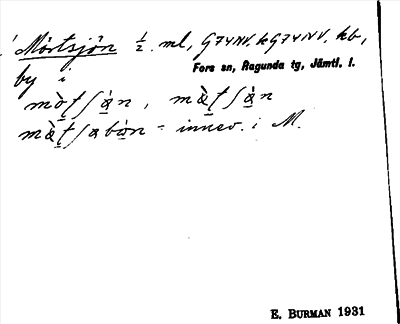 Mörtsjön ½ ml, G74NV, kG74NV, kb,
Fors sn, Ragunda tg, Jämtl. l.
by i
mò̤ʈʃà̤n, mà̤ʈʃà̤n
mà̤ʈʃabò̤n = innev. i M.
E. BURMAN 1931